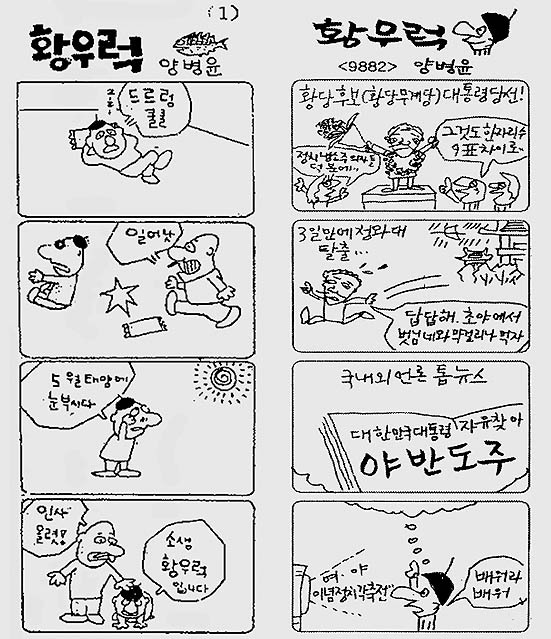 (1)
황우럭
양병윤
드르렁
쿨쿨
일어낫
5월태양에
눈부시다
인사
올렷!
소생
황우럭
입니다
황우럭
<9882> 양병윤
황당후보(황당무계당)대통령당선!
그것도한자리수
9표차이로
덕분에..
3일만에청와대
탈출...
답답해. 초야에서
벗님네와막걸리나먹자
국내외언론톱뉴스
대한민국대통령 자유찾아
야반도주
여·야
이념정치각축전"
배워라
배워